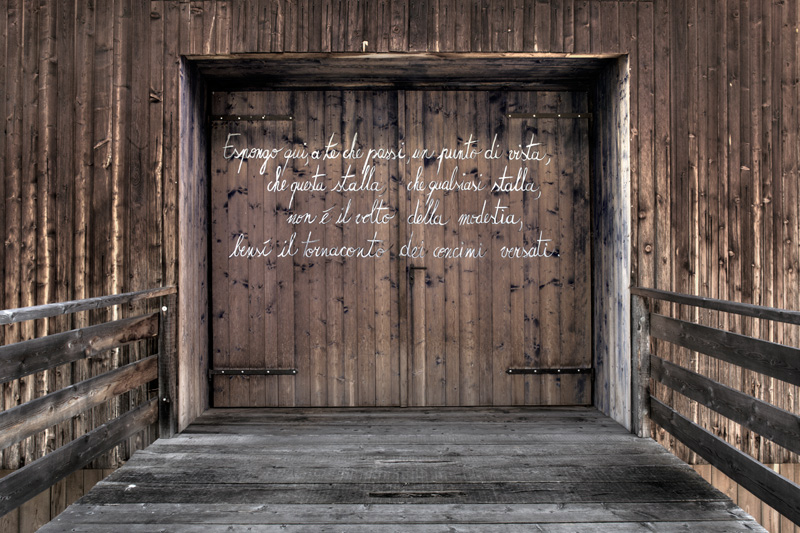 Espongo qui, a te che passi, un punto di vista,
che questa stalla, che qualsiasi stalla,
non è il volto della modestia,
bensì il tornaconto dei concimi versati.